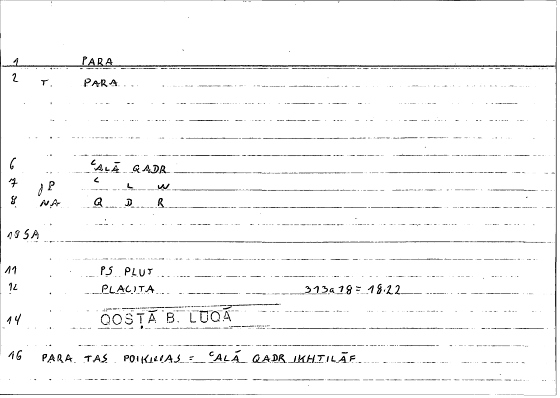 1 PARA
2 T. PARA
6 ʿALĀ QADR
7 JP ʿ L W
8 NA Q D R
185A
11 PS. PLUT
12 PLACITA 313a18 = 18.22
14 QOSṬĀ B. LŪQĀ
16 PARA TAS POIKILIAS = ʿALĀ QADR IKHTILĀF